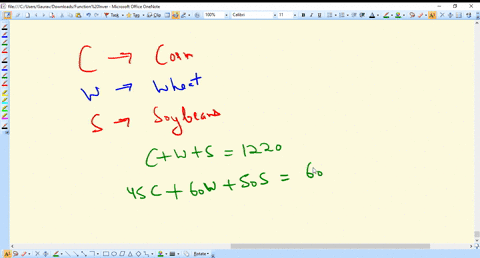 file:///C:/Users/Gaurav/Downloads/Function%20Diver - Microsoft Office OneNote
100%
Calibri
11
C → Corn
W → Wheat
S → Soybeans
C+W+S = 1220
45C + 60W + 50S = 60
100%
Rotate